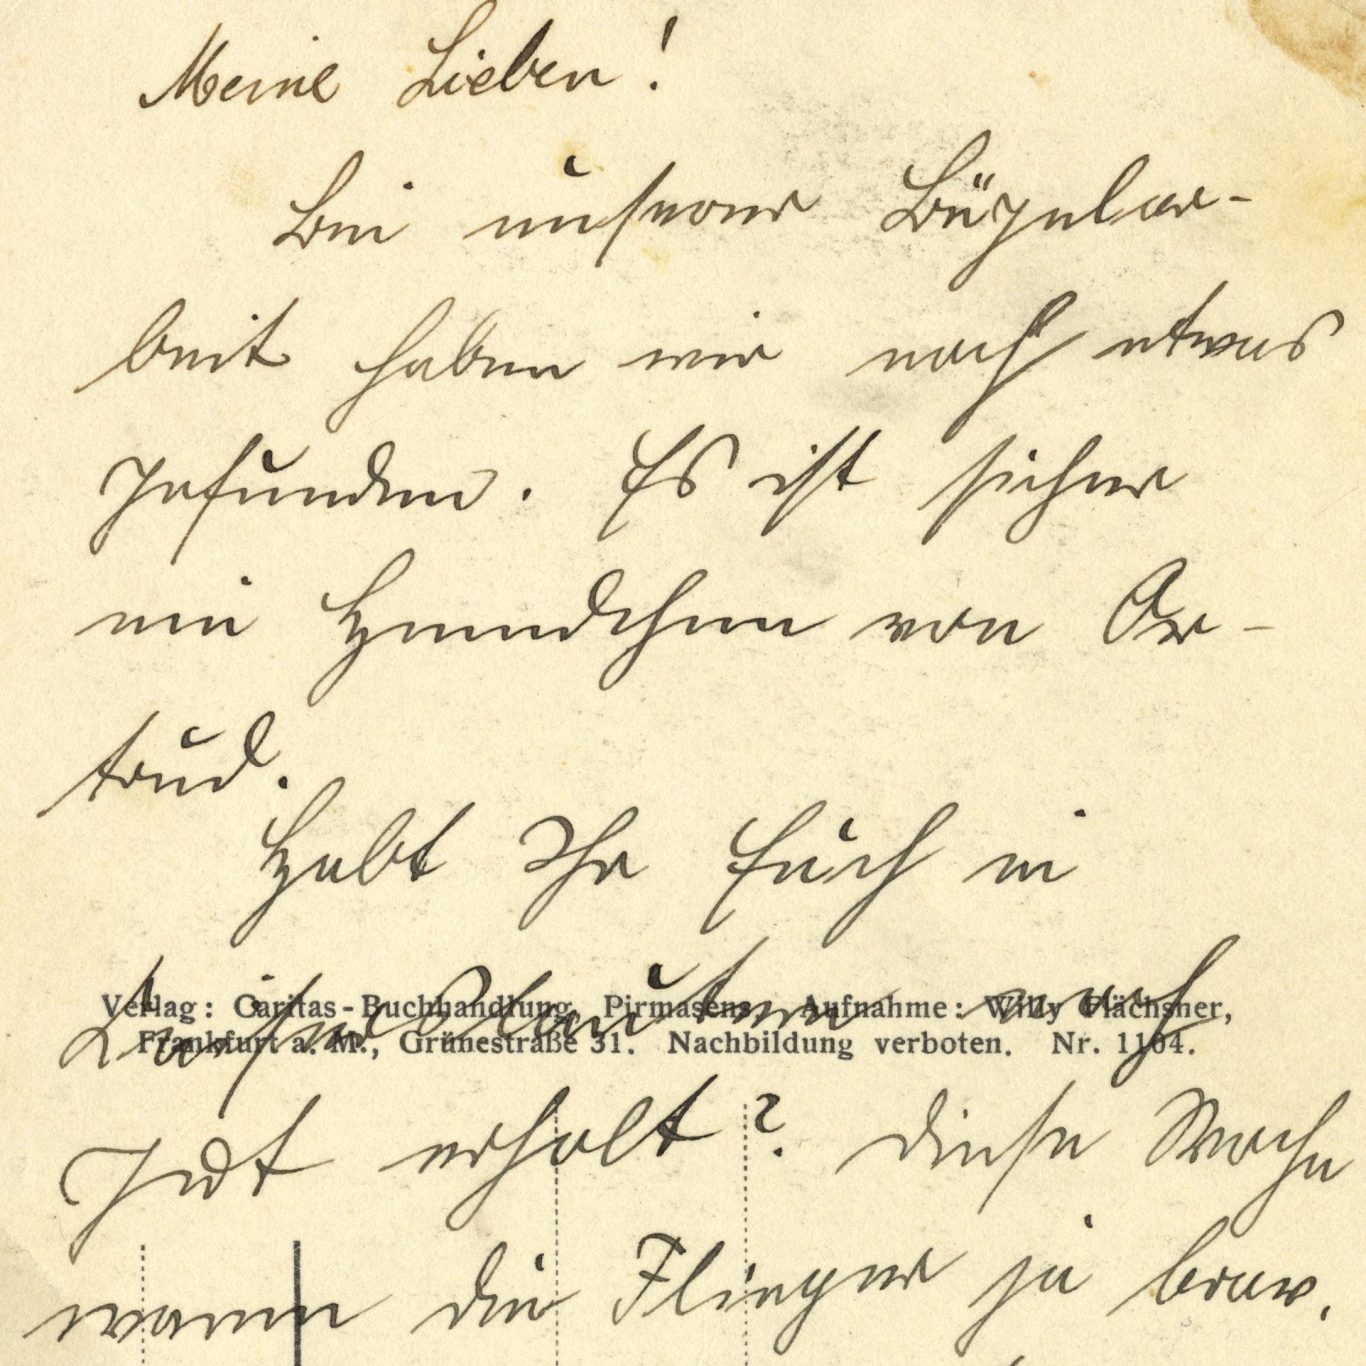 Meine Lieben!
Bei unserer Bügelar-
beit haben wir noch etwas
gefunden. Es ist sicher
ein Hemdchen von Or-
trud.
Habt Ihr Euch in
Kaiserslautern
Verlag: Caritas-Buchhandlung, Pirmasens. Aufnahme: Willy Flächsner,
Frankfurt a. M., Grünestraße 31. Nachbildung verboten. Nr. 1104.
gut erholt? Diese Woche
waren die Flieger ja brav.